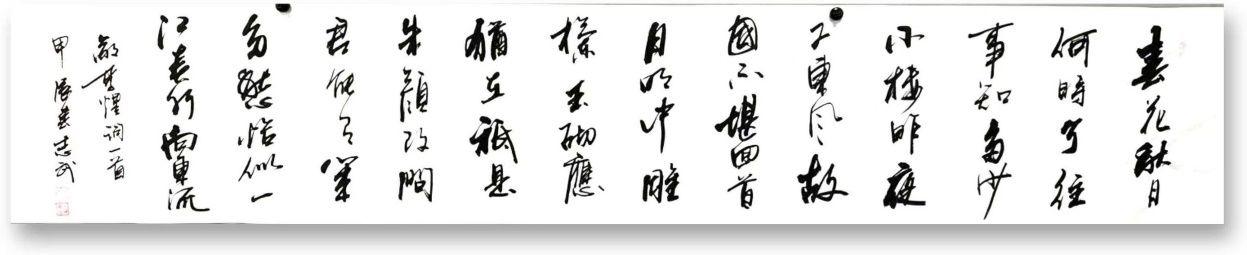 春花秋月
何時了往
事知多少
小樓昨夜
又東風故
國不堪回首
月明中雕
欄玉砌應
猶在祗是
朱顏改問
君能有幾
多愁恰似一
江春水向東流
李煜词一首
甲辰春志武